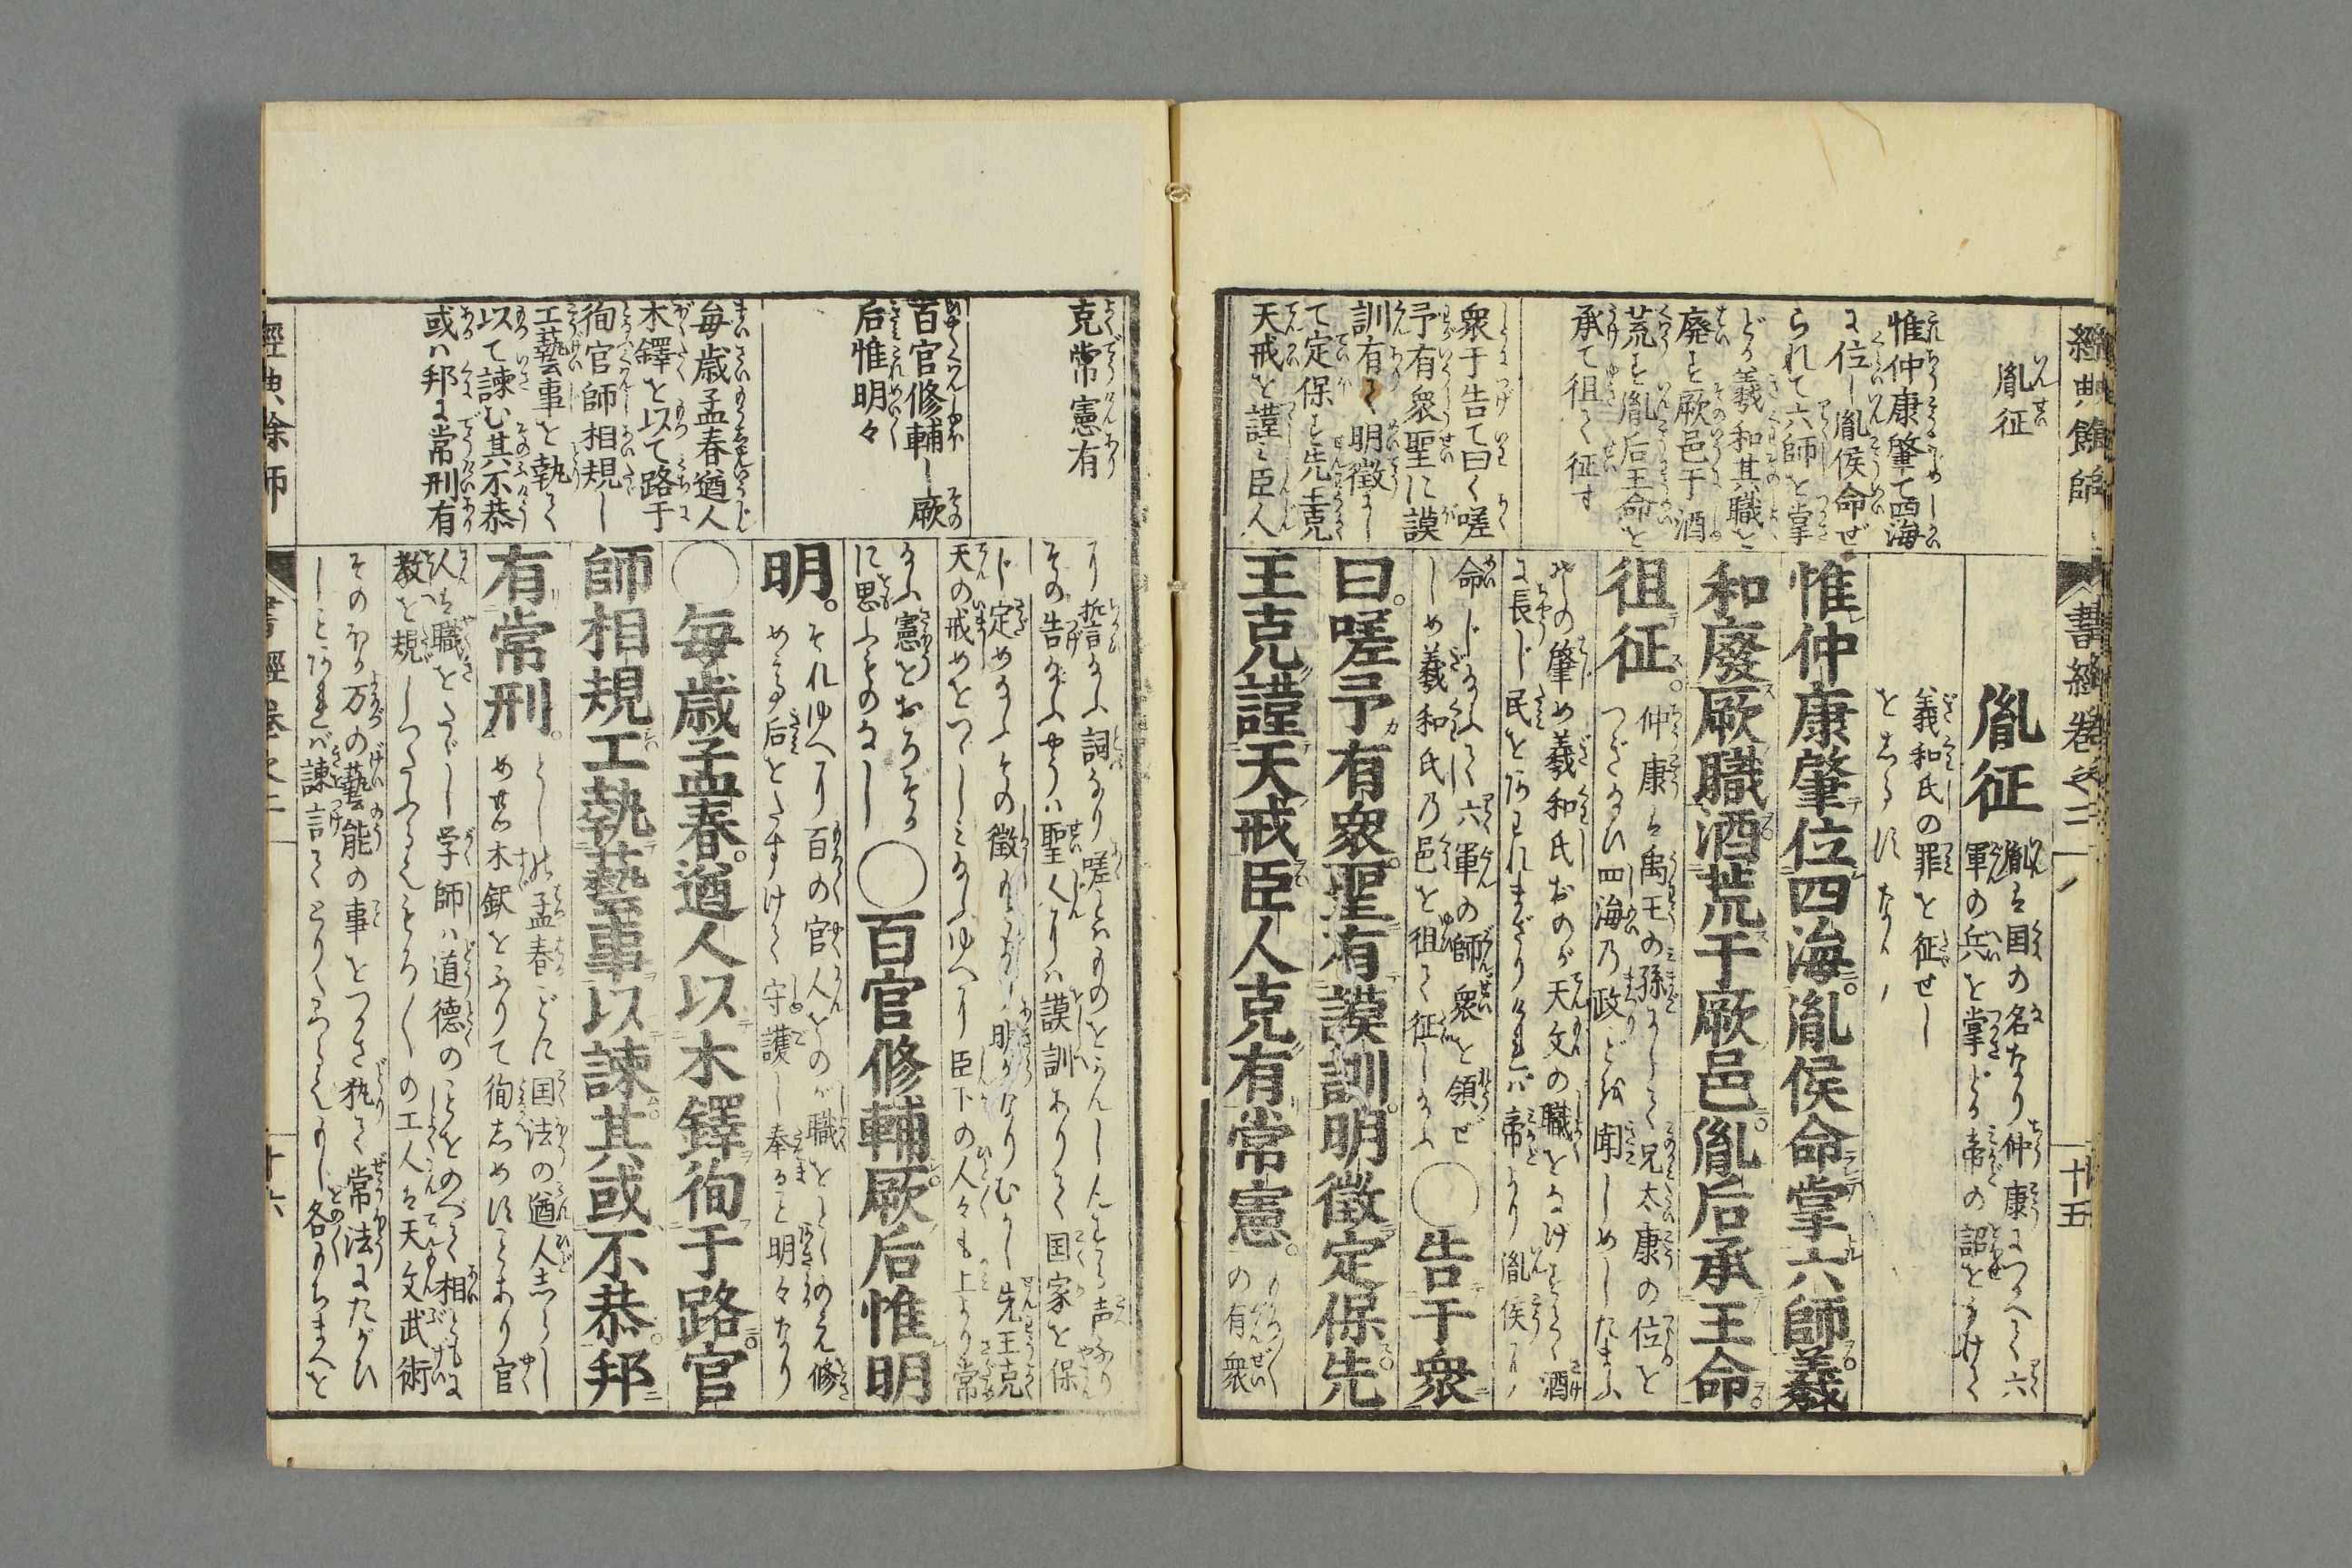 胤征
惟仲康肇て四海
に位し胤侯命ぜ
られて六師を掌
どる羲和其職を
廃す厥邑于酒
荒す胤后王命を
承て徂て征す
衆于告て曰く嗟
予有衆聖に謨
訓有て明徴にし
て定保す先王克
天戒を謹ミ臣人
胤征
胤は国の名なり仲康につかへて六
軍の兵を掌どる帝の詔をうけて
羲和氏の罪を征せし
をしるすなり
惟仲康肇位四海。胤侯命掌六師。羲
和廢厥職。酒荒于厥邑。胤后承王命。
徂征。
仲康は禹王の孫にして兄太康の位を
つぎ給ひ四海乃政どを聞しめしたまふ
の肇め羲和氏おのが天文の職をなげすてて酒
に長じ民をれまざりければ帝より胤侯に
命じ給ふて六軍の師衆を領ぜ
しめ羲和氏乃邑を徂て征し給ふ
○告于衆
曰。嗟予有衆。聖有謨訓。明徴定保。先
王克謹天戒。臣人克有常憲。
の有衆
經典餘師
書經卷之二
十五
克常憲有
百官修輔し厥
后惟明々
毎歳孟春遒人
木鐸を以て路于
徇官師相規し
工藝事を執て
以て諫む其不恭
或ハ邦に常刑有
り誓給ふ詞なり嗟とはものをかんしんする声なり
その告給ふやうハ聖人よりハ謨訓ありて国家を保
じ定め給ふその徴明かなりむかし先王克
天の戒めをつゝしミ給ふゆへり臣下の人々も上より常
給ふ憲とおろそか
に思ふものなし
○百官修輔。厥后惟明
明。
それゆへり百の官人をのが職をとゝのえ修
める后をたすけて守護し奉ると明々なり
○毎歳孟春。遒人以木鐸徇于路。官
師相規。工執藝事以諫。其或不恭。邦
有常刑。
としの孟春ごとに国法の遒人しらし
め世木鉄をふりて徇しめすことあり官
人は職をたゞし学師ハ道徳のことをのべて相ともに
教を規しつたふることろ〳〵の工人は天文武術
そのほか万の藝能の事をつかさ執て常法にたがひ
しことあれバ諫言てとりたゞし給へるし各のちまへを
經典餘師
書經卷之二
十六